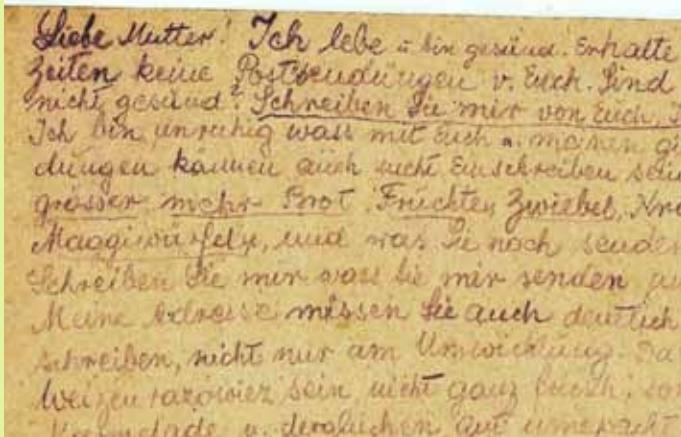 Liebe Mutter! Ich lebe u bin gesund. Erhalte
Zeiten keine Postsendungen v. Euch. Sind
nicht gesund? Schreiben Sie mir von Euch,
Ich bin unruhig wass mit Euch u. meinen
dungen können auch nicht Einschreiben sein
grösser mehr Brot Früchte, Zwiebel,
Maggiwürfely, und was Sie noch senden
Schreiben Sie mir wass Sie mir senden
Meine Adresse müssen Sie auch deutlich
schreiben, nicht nur am Umwicklung.
Weizen razowiez sein, nicht ganz frisch,
u. dergleichen gut umepackt